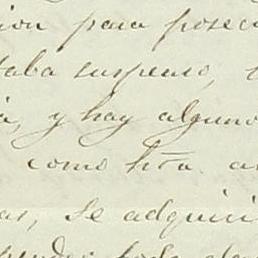 ion para posec
taba suspenso,
a, y hay alguno
como hta. a
as, se adquiri